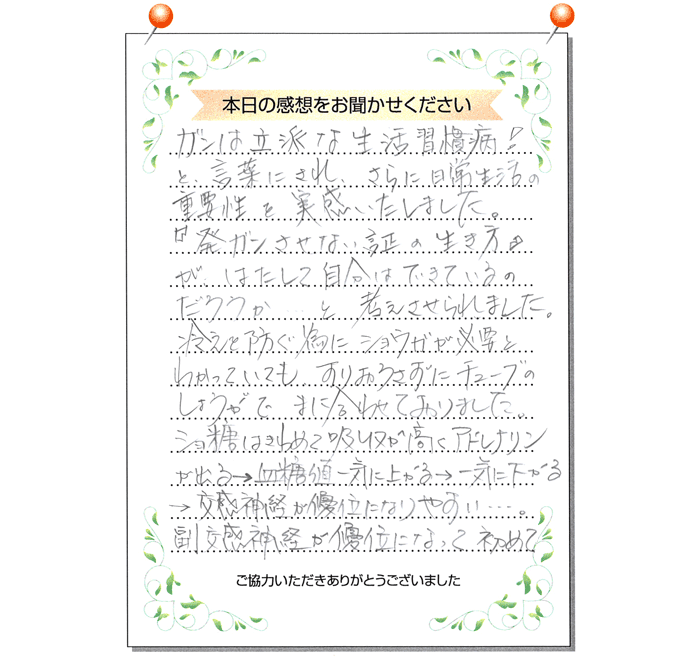 本日の感想をお聞かせください
ガンは立派な生活習慣病!!
と、言葉にされ、さらに日常生活の
重要性を実感いたしました。
『発ガンさせない証の生き方』
が、はたして自分はできているの
だろうか……と考えさせられました。
冷えを防ぐ為にショウガが必要と
わかっていても、すりおろさずにチューブの
しょうがで、まに合わせておりました。
ショ糖はきわめて吸収が高くアドレナリン
が出る→血糖値一気に上がる→一気に下がる
→交感神経が優位になりやすい…。
副交感神経が優位になって初めて
ご協力いただきありがとうございました